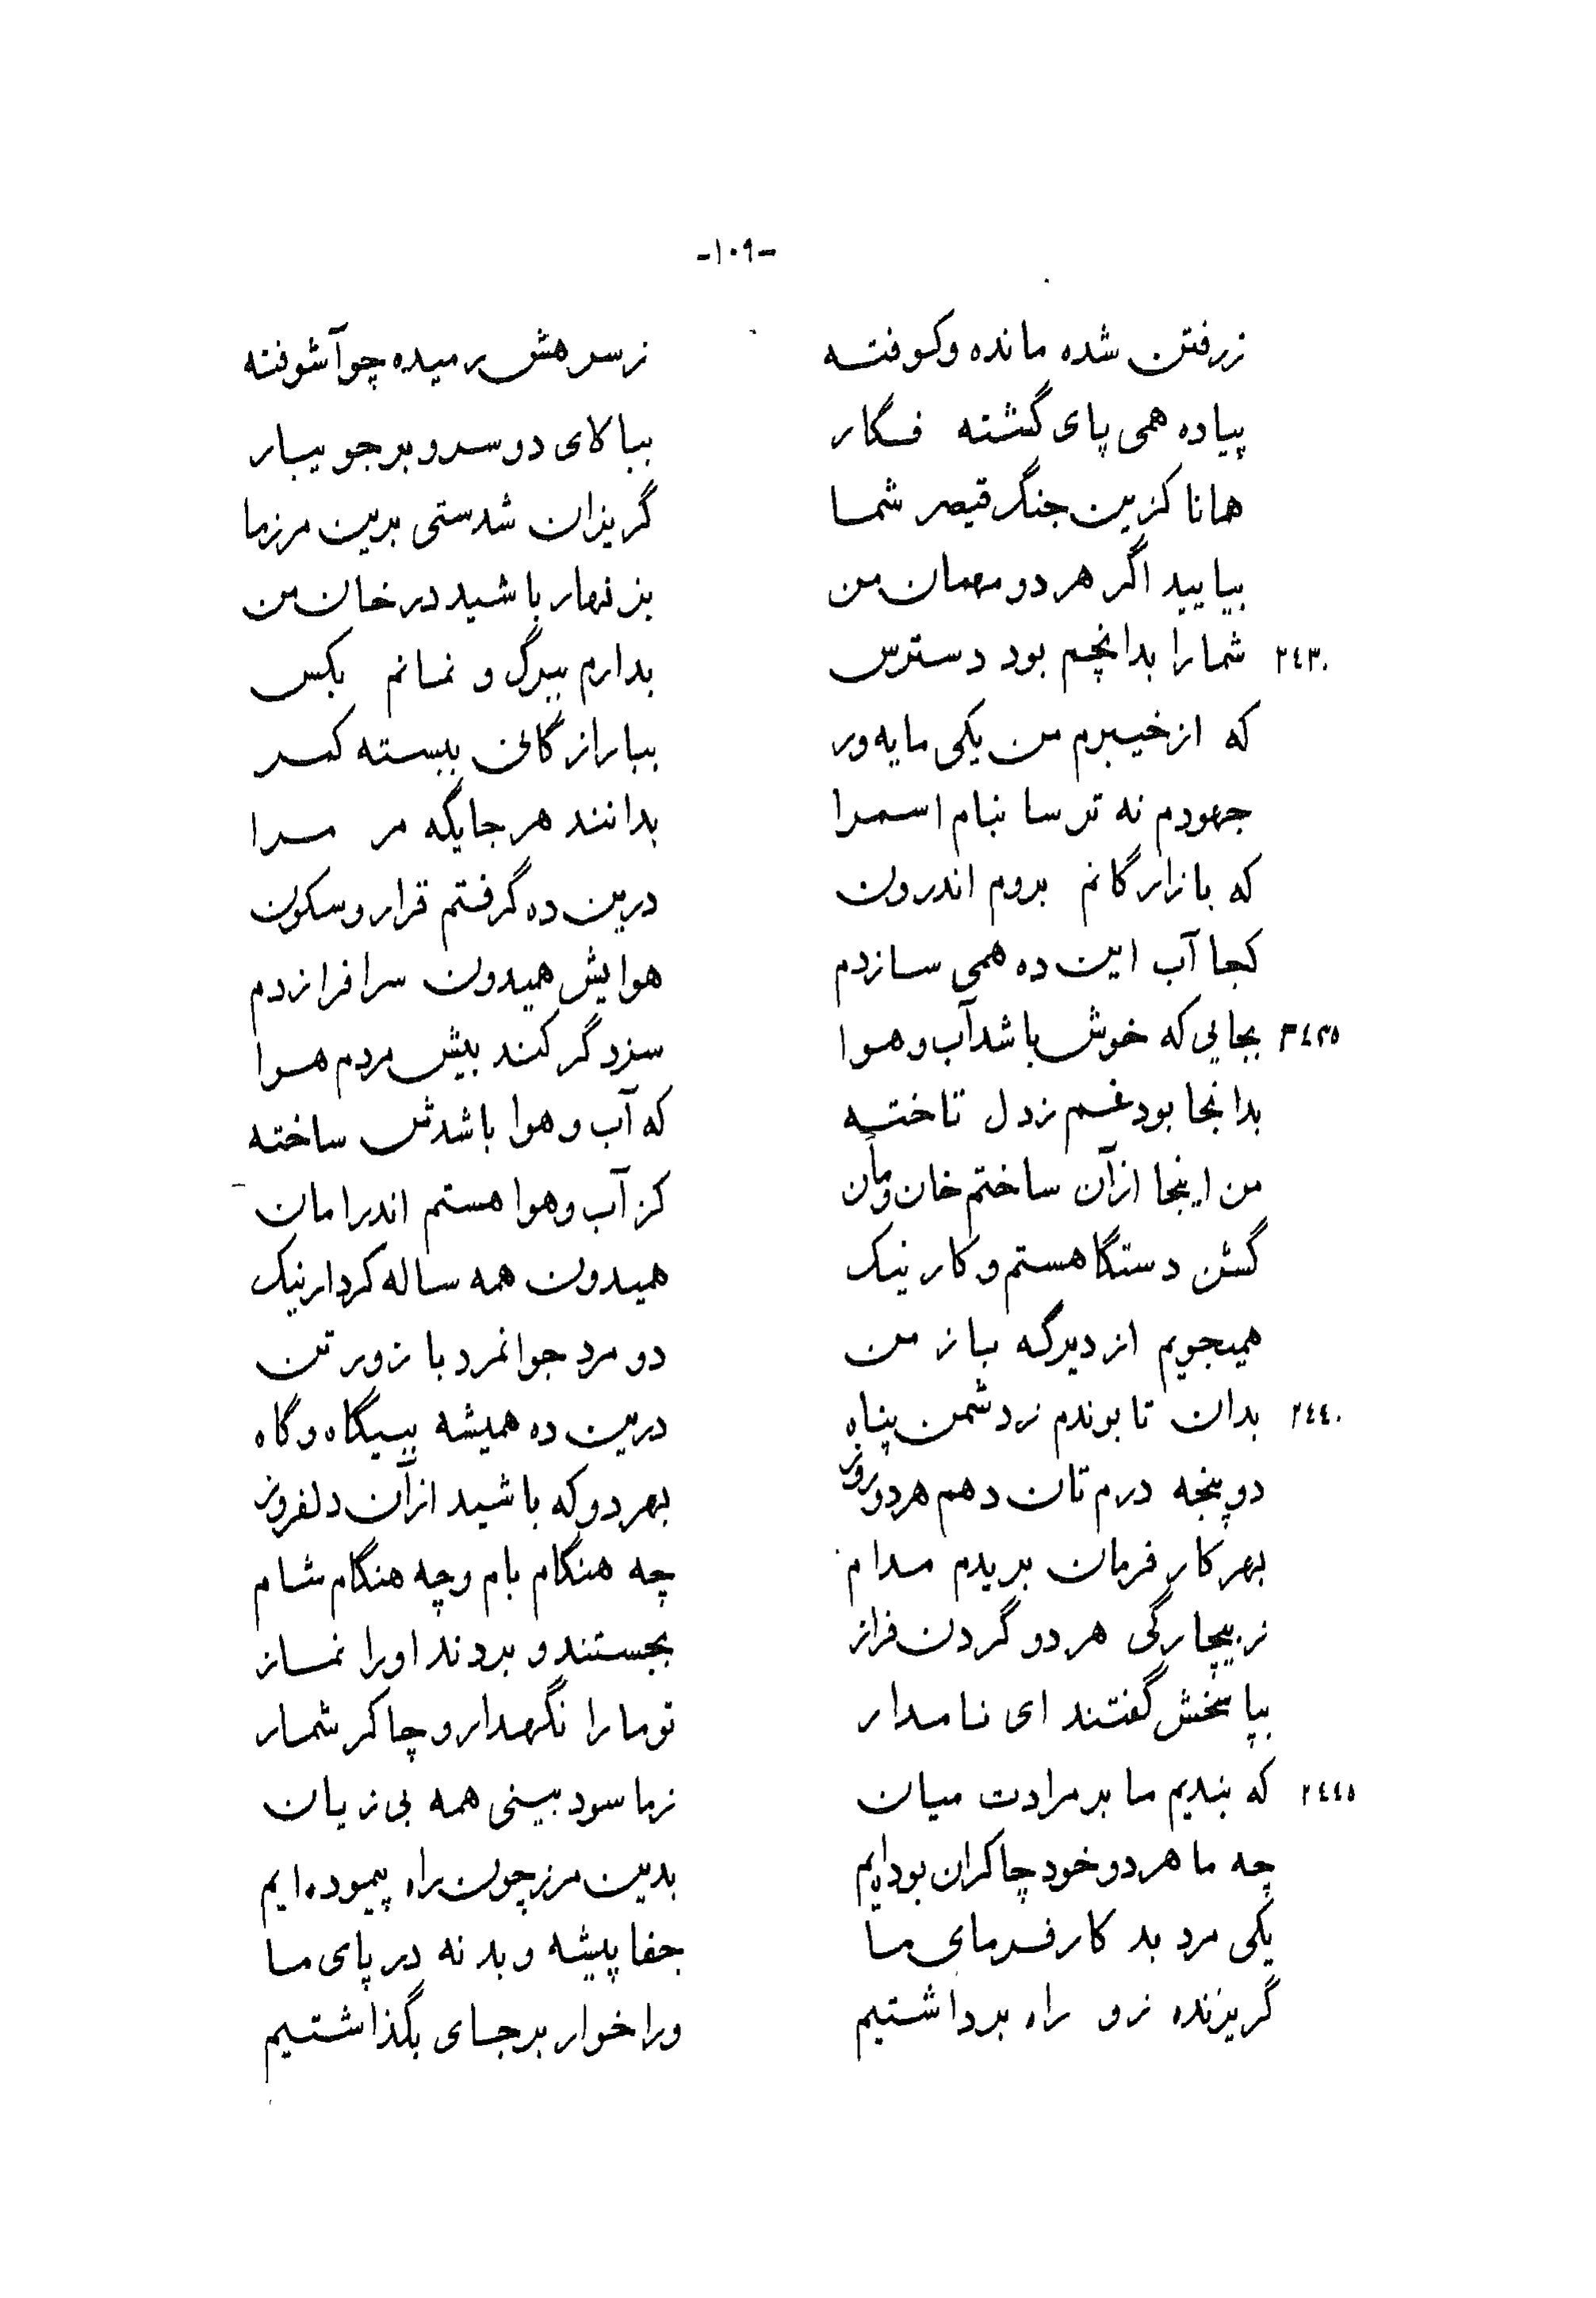 -۱۰۹-
زرفتن شده مانده وکوفته زسر هش رمیده چو آشوفته
پیاده همی پای گشته فگار ببالای دو سرو بر جویبار
همانا کزین جنگ قیصر شما گریزان شدستی بدین مرزما
بیایید اگر هر دو مهمان من بزنهار باشید در خان من
۲٤۳۰ شمارا بدانچم بود دسترس بدارم ببرگ و نمانم بکس
که از خیبرم من یکی مایه ور ببازارگانی ببسته کمر
جهودم نه ترسا بنام اسمرا بدانند هر جایگه مر مرا
که بازارگانم بروم اندرون درین ده گرفتم قرار و سکون
کجا آب این ده همی سازدم هوایش همیدون سرافرازدم
۲٤۳٥ بجایی که خوش باشد آب و هوا سزد گر کند بیش مردم هوا
بدانجا بود غم ز دل تاخته که آب و هوا باشدش ساخته
من اینجا از آن ساختم خان و مان کز آب و هوا هستم اندر امان
گشن دستگا هستم و کار نیک همیدون همه ساله کردار نیک
همیجویم از دیرگه باز من دو مرد جوانمرد با زور تن
۲٤٤۰ بدان تا بوندم ز دشمن پناه درین ده همیشه ببیگاه و گاه
دو پنجه درم تان دهم هر دو روز بهر دو که باشید ازآن دلفروز
بهر کار فرمان بریدم مدام چه هنگام بام و چه هنگام شام
ز بیچارگی هر دو گردن فراز بجستند و بردند اورا نماز
بپاسخش گفتند ای نامدار تو مارا نگهدار و چاکر شمار
۲٤٤٥ که بندیم ما بر مرادت میان زما سود بینی همه بی زیان
چه ما هر دو خود چاکران بوده ایم بدین مرز چون راه پیموده ایم
یکی مرد بد کارفرمای ما جفا پیشه و بد نه در پای ما
گریزنده زو راه برداشتیم ورا خوار بر جای بگذاشتیم